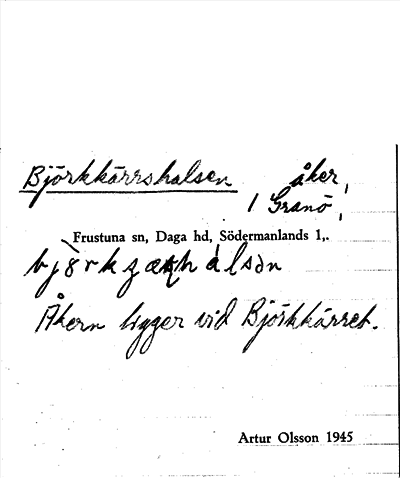 Björkkärrshalsen åker,
1 Granö,
Frustuna sn, Daga hd, Södermanlands l,.
Åkern ligger vid Björkkärret.
Artur Olsson 1945